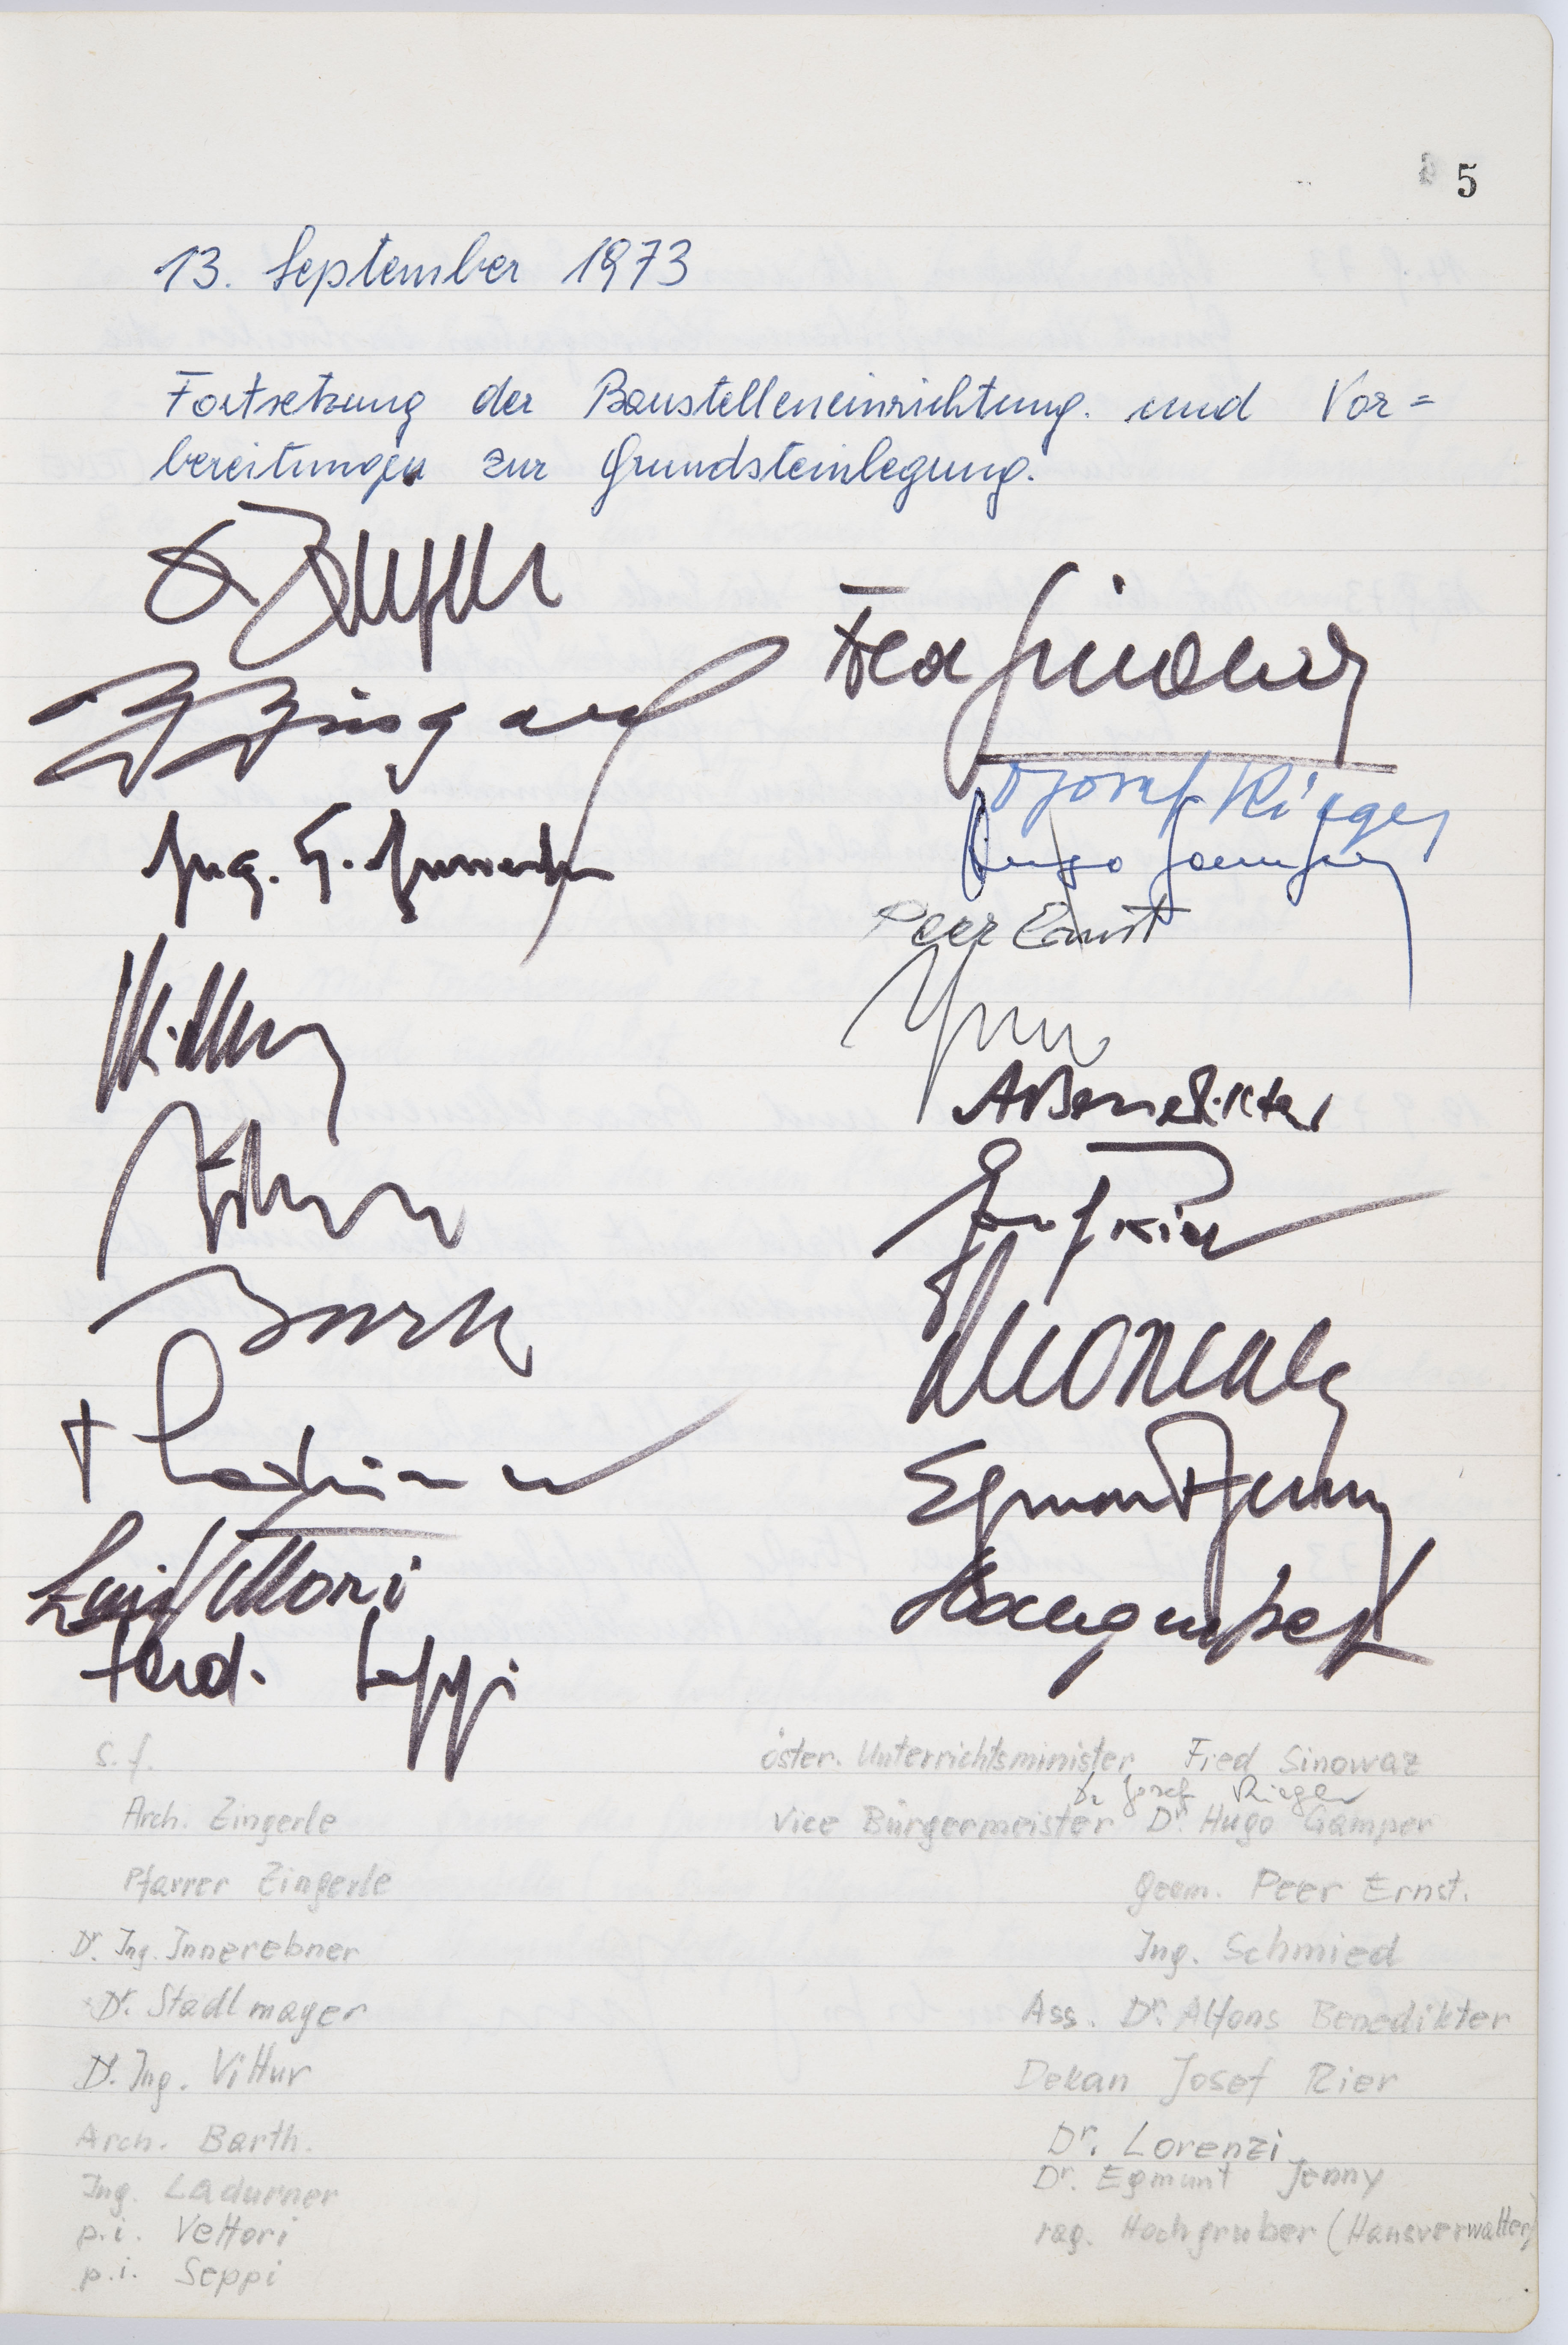 5
13. September 1973
Fortsetzung der Baustelleneinrichtung und Vor=
bereitungen zur Grundsteinlegung.
Zingerle
Fred Sinowaz
Josef Rieger
Hugo Gamper
Ing. G. Innerebner
Peer Ernst
A Benedikter
Josef Rier
Barth
Lorenzi
+ Ladurner
Egmont Jenny
Luis Vettori
Hochgruber
Ferd. Seppi
s. f.
Arch. Zingerle
Pfarrer Zingerle
Dr. Ing. Innerebner
Dr. Stadlmayer
D. Ing. Vittur
Arch. Barth.
Ing. Ladurner
p.i. Vettori
p.i. Seppi
öster. Unterrichtsminister Fred Sinowaz
Dr Josef Rieger
Vice Bürgermeister Dr. Hugo Gamper
geom. Peer Ernst.
Ing. Schmied
Ass. Dr. Alfons Benedikter
Dekan Josef Rier
Dr. Lorenzi
Dr. Egmunt Jenny
rag. Hochgruber (Hausverwalter)